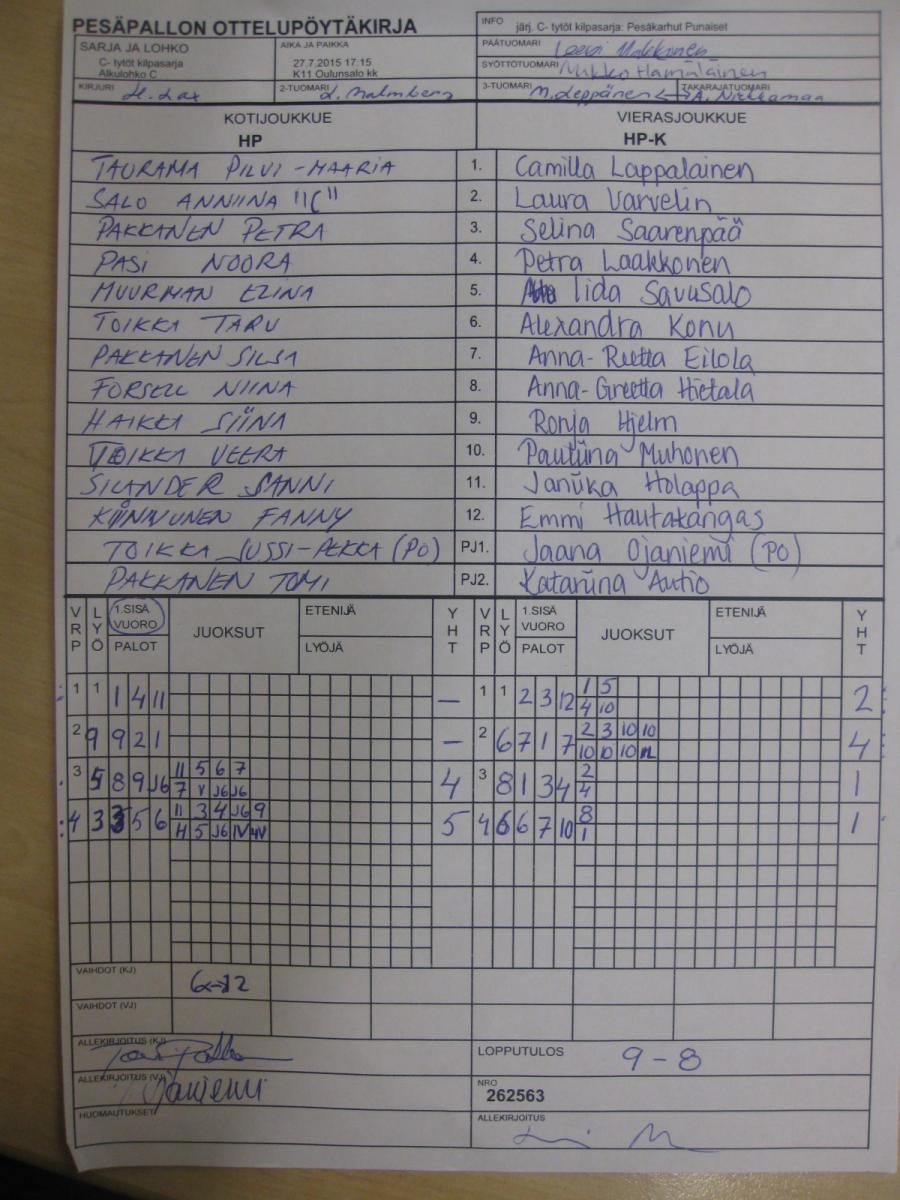 PESÄPALLON OTTELUPÖYTÄKIRJA
INFO järj. C- tytöt kilpasarja: Pesäkarhut Punaiset
SARJA JA LOHKO
C- tytöt kilpasarja
Alkulohko C
AIKA JA PAIKKA
27.7.2015 17:15
K11 Oulunsalo kk
PÄÄTUOMARI
SYÖTTÖTUOMARI Mikko Hämäläinen
KIRJURI H. Lax
2-TUOMARI L. Malmberg
3-TUOMARI M. Leppänen
TAKARAJATUOMARI A.
KOTIJOUKKUE VIERASJOUKKUE
HP HP-K
TAURAMA PILVI-MAARIA 1. Camilla Lappalainen
SALO ANNIINA "C" 2. Laura Varvelin
PAKKANEN PETRA 3. Selina Saarenpää
PASI NOORA 4. Petra Laakkonen
MUURMAN ELINA 5. Iida Savusalo
TOIKKA TARU 6. Alexandra Konu
PAKKANEN SILJA 7. Anna-Reetta Eilola
FORSELL NIINA 8. Anna-Greetta Hietala
HAIKKA SIINA 9. Ronja Hjelm
TOIKKA VEERA 10. Pauliina Muhonen
SILANDER SANNI 11. Janika Holappa
KINNUNEN FANNY 12. Emmi Hautakangas
TOIKKA JUSSI-PEKKA (PO) PJ1. Jaana Ojaniemi (PO)
PAKKANEN TOMI PJ2. Katariina Autio
VRP LYÖ 1.SISÄ VUORO PALOT JUOKSUT ETENIJÄ LYÖJÄ YHT VRP LYÖ 1.SISÄ VUORO PALOT JUOKSUT ETENIJÄ LYÖJÄ YHT
1 1 1 4 11 — 1 1 2 3 12 1 5 2
4 10
2 9 9 2 1 — 2 6 7 1 7 2 3 10 10 4
10 10 10
3 5 8 9 J6 11 5 6 7 4 3 8 1 3 4 2 1
7 V J6 J6 4
4 3 3 5 6 11 3 4 J6 9 5 4 6 6 7 10 8 1
5 J6 IV 1
VAIHDOT (KJ) 6↔12
VAIHDOT (VJ)
ALLEKIRJOITUS (KJ)
LOPPUTULOS 9-8
ALLEKIRJOITUS (VJ) Ojaniemi
NRO
262563
HUOMAUTUKSET
ALLEKIRJOITUS